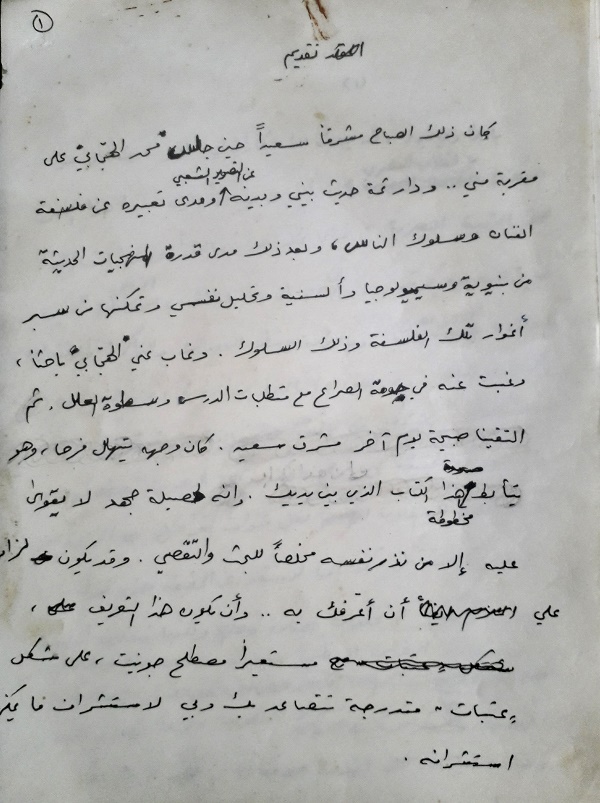 ١
تقديم
كان ذلك الصباح مشرقاً سعيداً حين جلس "محمد الحجّابي" على
عن التصوير الشعبي
مقربة مني .. ودار ثمة حديث بيني وبينه ومدى تعبيره عن فلسفة
الفنان وسلوك الناس، وبعد ذلك مدى قدرة المنهجيات الحديثة
من بنيوية وسيميولوجيا وألسنية وتحليل نفسي وتمكنها من سبر
أغوار تلك الفلسفة وذلك السلوك . وغاب عني "الحجّابي" باحثا،
وغبت عنه في حومة الصراع مع متطلبات الدرس وسطوة العلل . ثم
التقينا صبيحة يوم آخر مشرق سعيد . كان وجهه يتهلل فرحا، وهو
يتأبط هذا الكتاب الذي بين يديك . وانه لحصيلة جهد لا يقوى
مخطوطة
عليه إلا من نذر نفسه مخلصاً للبحث والتقصي . وقد يكون لزاما
علي أن أعرفك به .. وأن يكون هذا التعريف ،
مستعيرا مصطلح جونيت ، على شكل
"عتبات" متدرجة تتصاعد بك وبي لاستشراف ما يمكن
استشرافه .